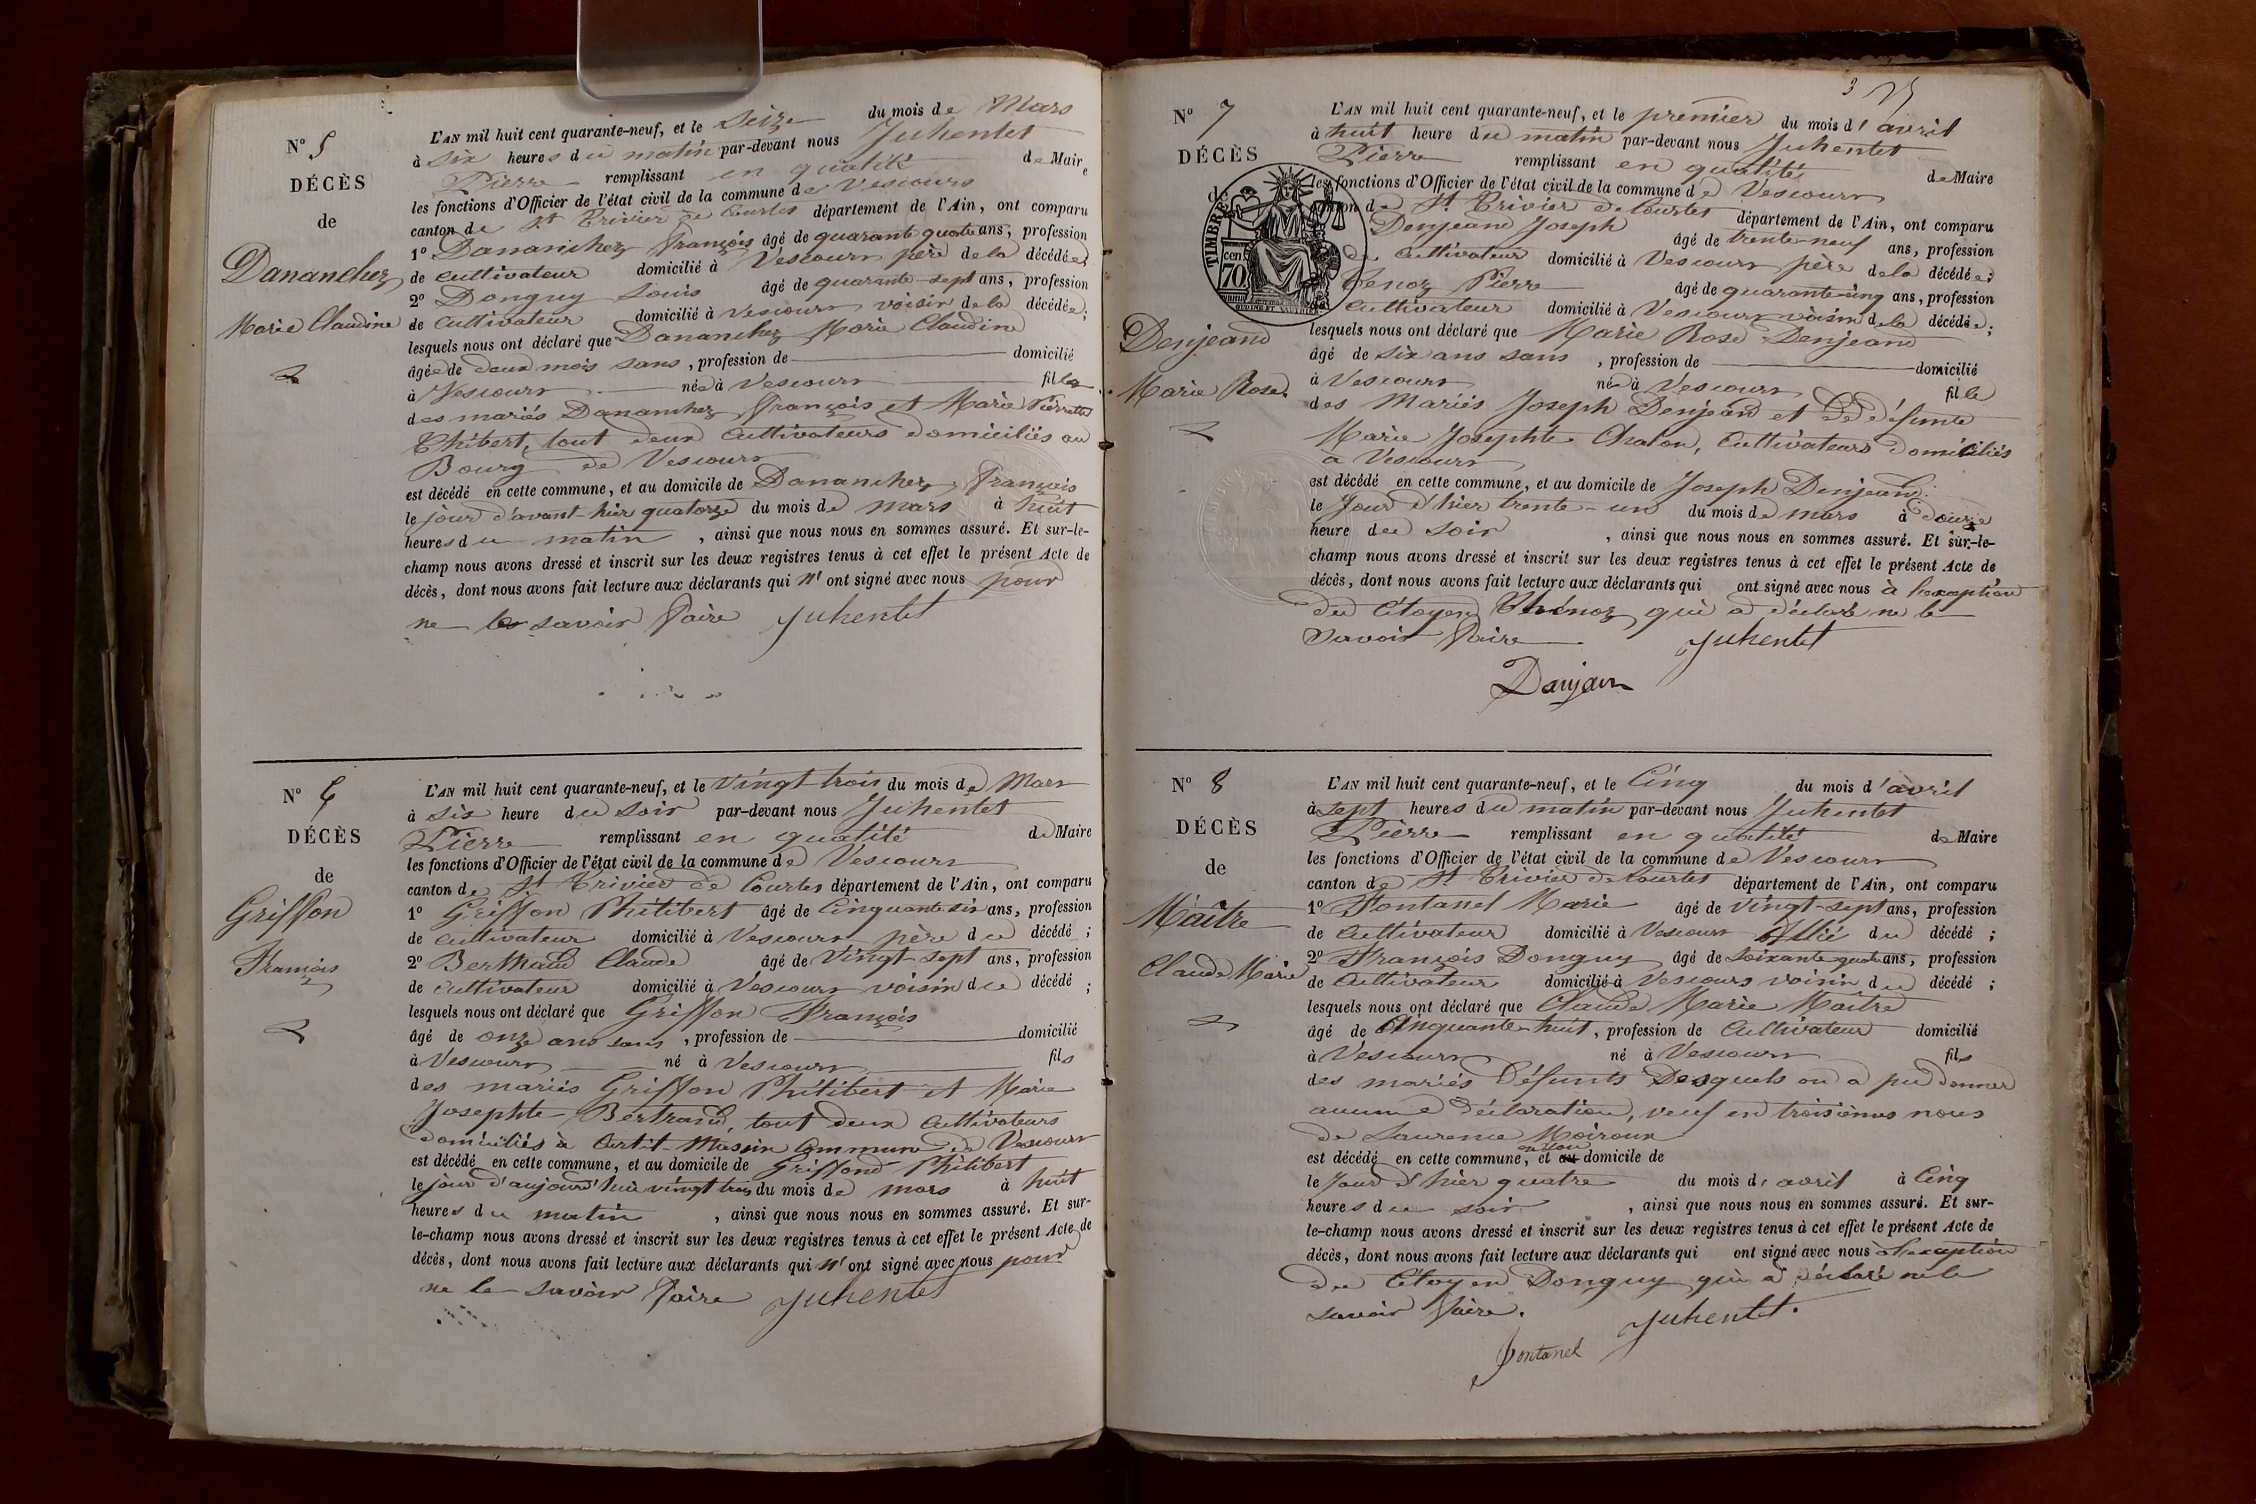 N° 5
DÉCÈS
de
Dananchez
Marie Claudine
L'AN mil huit cent quarante-neuf, et le seize du mois de Mars
à six heures du matin par-devant nous Juhentet
Pierre remplissant en qualité de Maire
les fonctions d'Officier de l'état civil de la commune de Vescours
canton de St Trivier de Courtes département de l'Ain, ont comparu
1° Dananchez François âgé de quarante quatre ans, profession
de cultivateur domicilié à Vescours père de la décédée;
2° Donguy Louis âgé de quarante-sept ans, profession
de cultivateur domicilié à Vescours voisin de la décédée;
lesquels nous ont déclaré que Dananchez Marie Claudine
âgée de deux mois sans, profession de domicilié
à Vescours née à Vescours fille
des mariés Dananchez François et Marie Pierrette
Thibert, tout deux Cultivateurs domiciliés au
Bourg de Vescours
est décédé en cette commune, et au domicile de Dananchez François
le jour d'avant-hier quatorze du mois de mars à huit
heures du matin, ainsi que nous nous en sommes assuré. Et sur-le-
champ nous avons dressé et inscrit sur les deux registres tenus à cet effet le présent Acte de
décès, dont nous avons fait lecture aux déclarants qui n' ont signé avec nous pour
ne le savoir faire Juhentet
N° 6
DÉCÈS
de
Griffon
François
L'AN mil huit cent quarante-neuf, et le vingt trois du mois de Mars
à six heure du soir par-devant nous Juhentet
Pierre remplissant en qualité de Maire
les fonctions d'Officier de l'état civil de la commune de Vescours
canton de St Trivier de Courtes département de l'Ain, ont comparu
1° Griffon Philibert âgé de Cinquante six ans, profession
de cultivateur domicilié à Vescours père du décédé;
2° Berthaud Claude âgé de vingt sept ans, profession
de cultivateur domicilié à Vescours voisin du décédé;
lesquels nous ont déclaré que Griffon François
âgé de onze ans sans, profession de domicilié
à Vescours né à Vescours fils
des mariés Griffon Philibert et Marie
Josephte Bertrand, tout deux Cultivateurs
domiciliés à Commune de Vescours
est décédé en cette commune, et au domicile de Griffond Philibert
le jour d'aujourd'hui vingt trois du mois de mars à huit
heures du matin, ainsi que nous nous en sommes assuré. Et sur-
le-champ nous avons dressé et inscrit sur les deux registres tenus à cet effet le présent Acte de
décès, dont nous avons fait lecture aux déclarants qui n' ont signé avec nous pour
ne le savoir faire Juhentet
3
N° 7
DÉCÈS
de
TIMBRE
70 cen
Denjeand
Marie Rose
L'AN mil huit cent quarante-neuf, et le premier du mois d'avril
à huit heure du matin par-devant nous Juhentet
Pierre remplissant en qualité de Maire
les fonctions d'Officier de l'état civil de la commune de Vescours
canton de St Trivier de Courtes département de l'Ain, ont comparu
Denjeand Joseph âgé de trente-neuf ans, profession
de Cultivateur domicilié à Vescours père de la décédée;
Tenoz Pierre âgé de quarante-cinq ans, profession
Cultivateur domicilié à Vescours voisin de la décédée;
lesquels nous ont déclaré que Marie Rose Denjeand
âgé de six ans sans, profession de domicilié
à Vescours née à Vescours fille
des Mariés Joseph Denjeand et de défunte
Marie Josephte Chalon, Cultivateurs domiciliés
à Vescours
est décédé en cette commune, et au domicile de Joseph Denjeand
le Jour d'hier trente-un du mois de mars à douze
heure du soir, ainsi que nous nous en sommes assuré. Et sur-le-
champ nous avons dressé et inscrit sur les deux registres tenus à cet effet le présent Acte de
décès, dont nous avons fait lecture aux déclarants qui ont signé avec nous à l'exception
du Citoyen Thénoz qui a déclaré ne le
Savoir faire Juhentet
Danjean
N° 8
DÉCÈS
de
Maître
Claude Marie
L'AN mil huit cent quarante-neuf, et le Cinq du mois d'avril
à sept heures du matin par-devant nous Juhentet
Pierre remplissant en qualité de Maire
les fonctions d'Officier de l'état civil de la commune de Vescours
canton de St Trivier de Courtes département de l'Ain, ont comparu
1° Fontanel Marie âgé de vingt-sept ans, profession
de Cultivateur domicilié à Vescours Allié du décédé;
2° François Donguy âgé de Soixante quatre ans, profession
de Cultivateur domicilié à Vescours voisin du décédé;
lesquels nous ont déclaré que Claude Marie Maître
âgé de Cinquante-huit, profession de Cultivateur domicilié
à Vescours né à Vescours fils
des mariés Défunts Desquels on a pu donner
aucune déclaration, veuf en troisièmes noces
de Laurence Moiroux
est décédé en cette commune, et au domicile de
le Jour d'hier quatre du mois d'avril à Cinq
heures du soir, ainsi que nous nous en sommes assuré. Et sur-
le-champ nous avons dressé et inscrit sur les deux registres tenus à cet effet le présent Acte de
décès, dont nous avons fait lecture aux déclarants qui ont signé avec nous à l'exception
du Citoyen Donguy qui a déclaré ne le
savoir faire. Juhentet.
fontanel